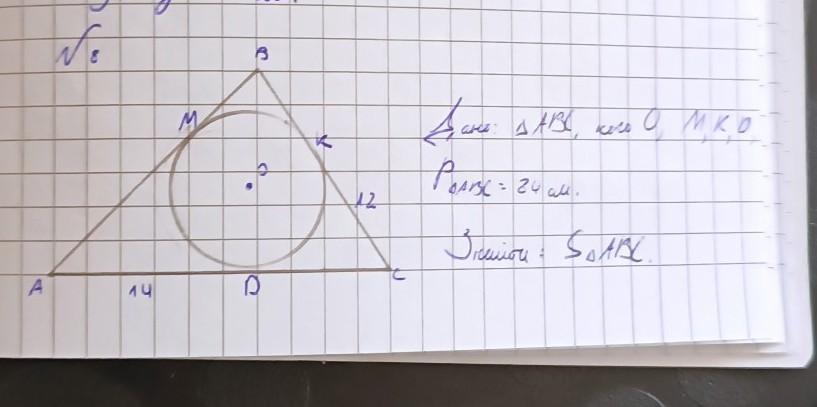 №8
B
M
K
O
12
A
14
D
C
Дано: △ABC, коло O, M, K, D,
P△ABC = 24 см.
Знайти: S△ABC.